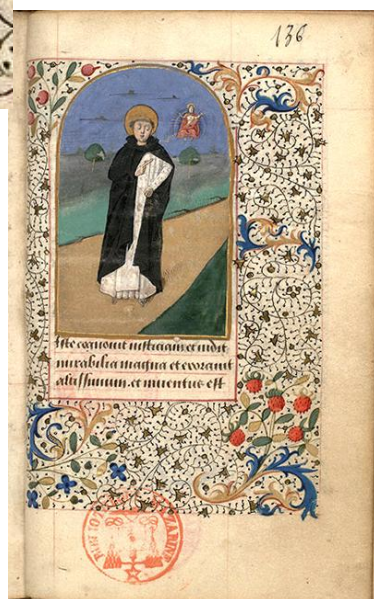 136
Iste cognouit iusticiam et uidit
mirabilia magna et exorauit
altissimum. et inuentus est